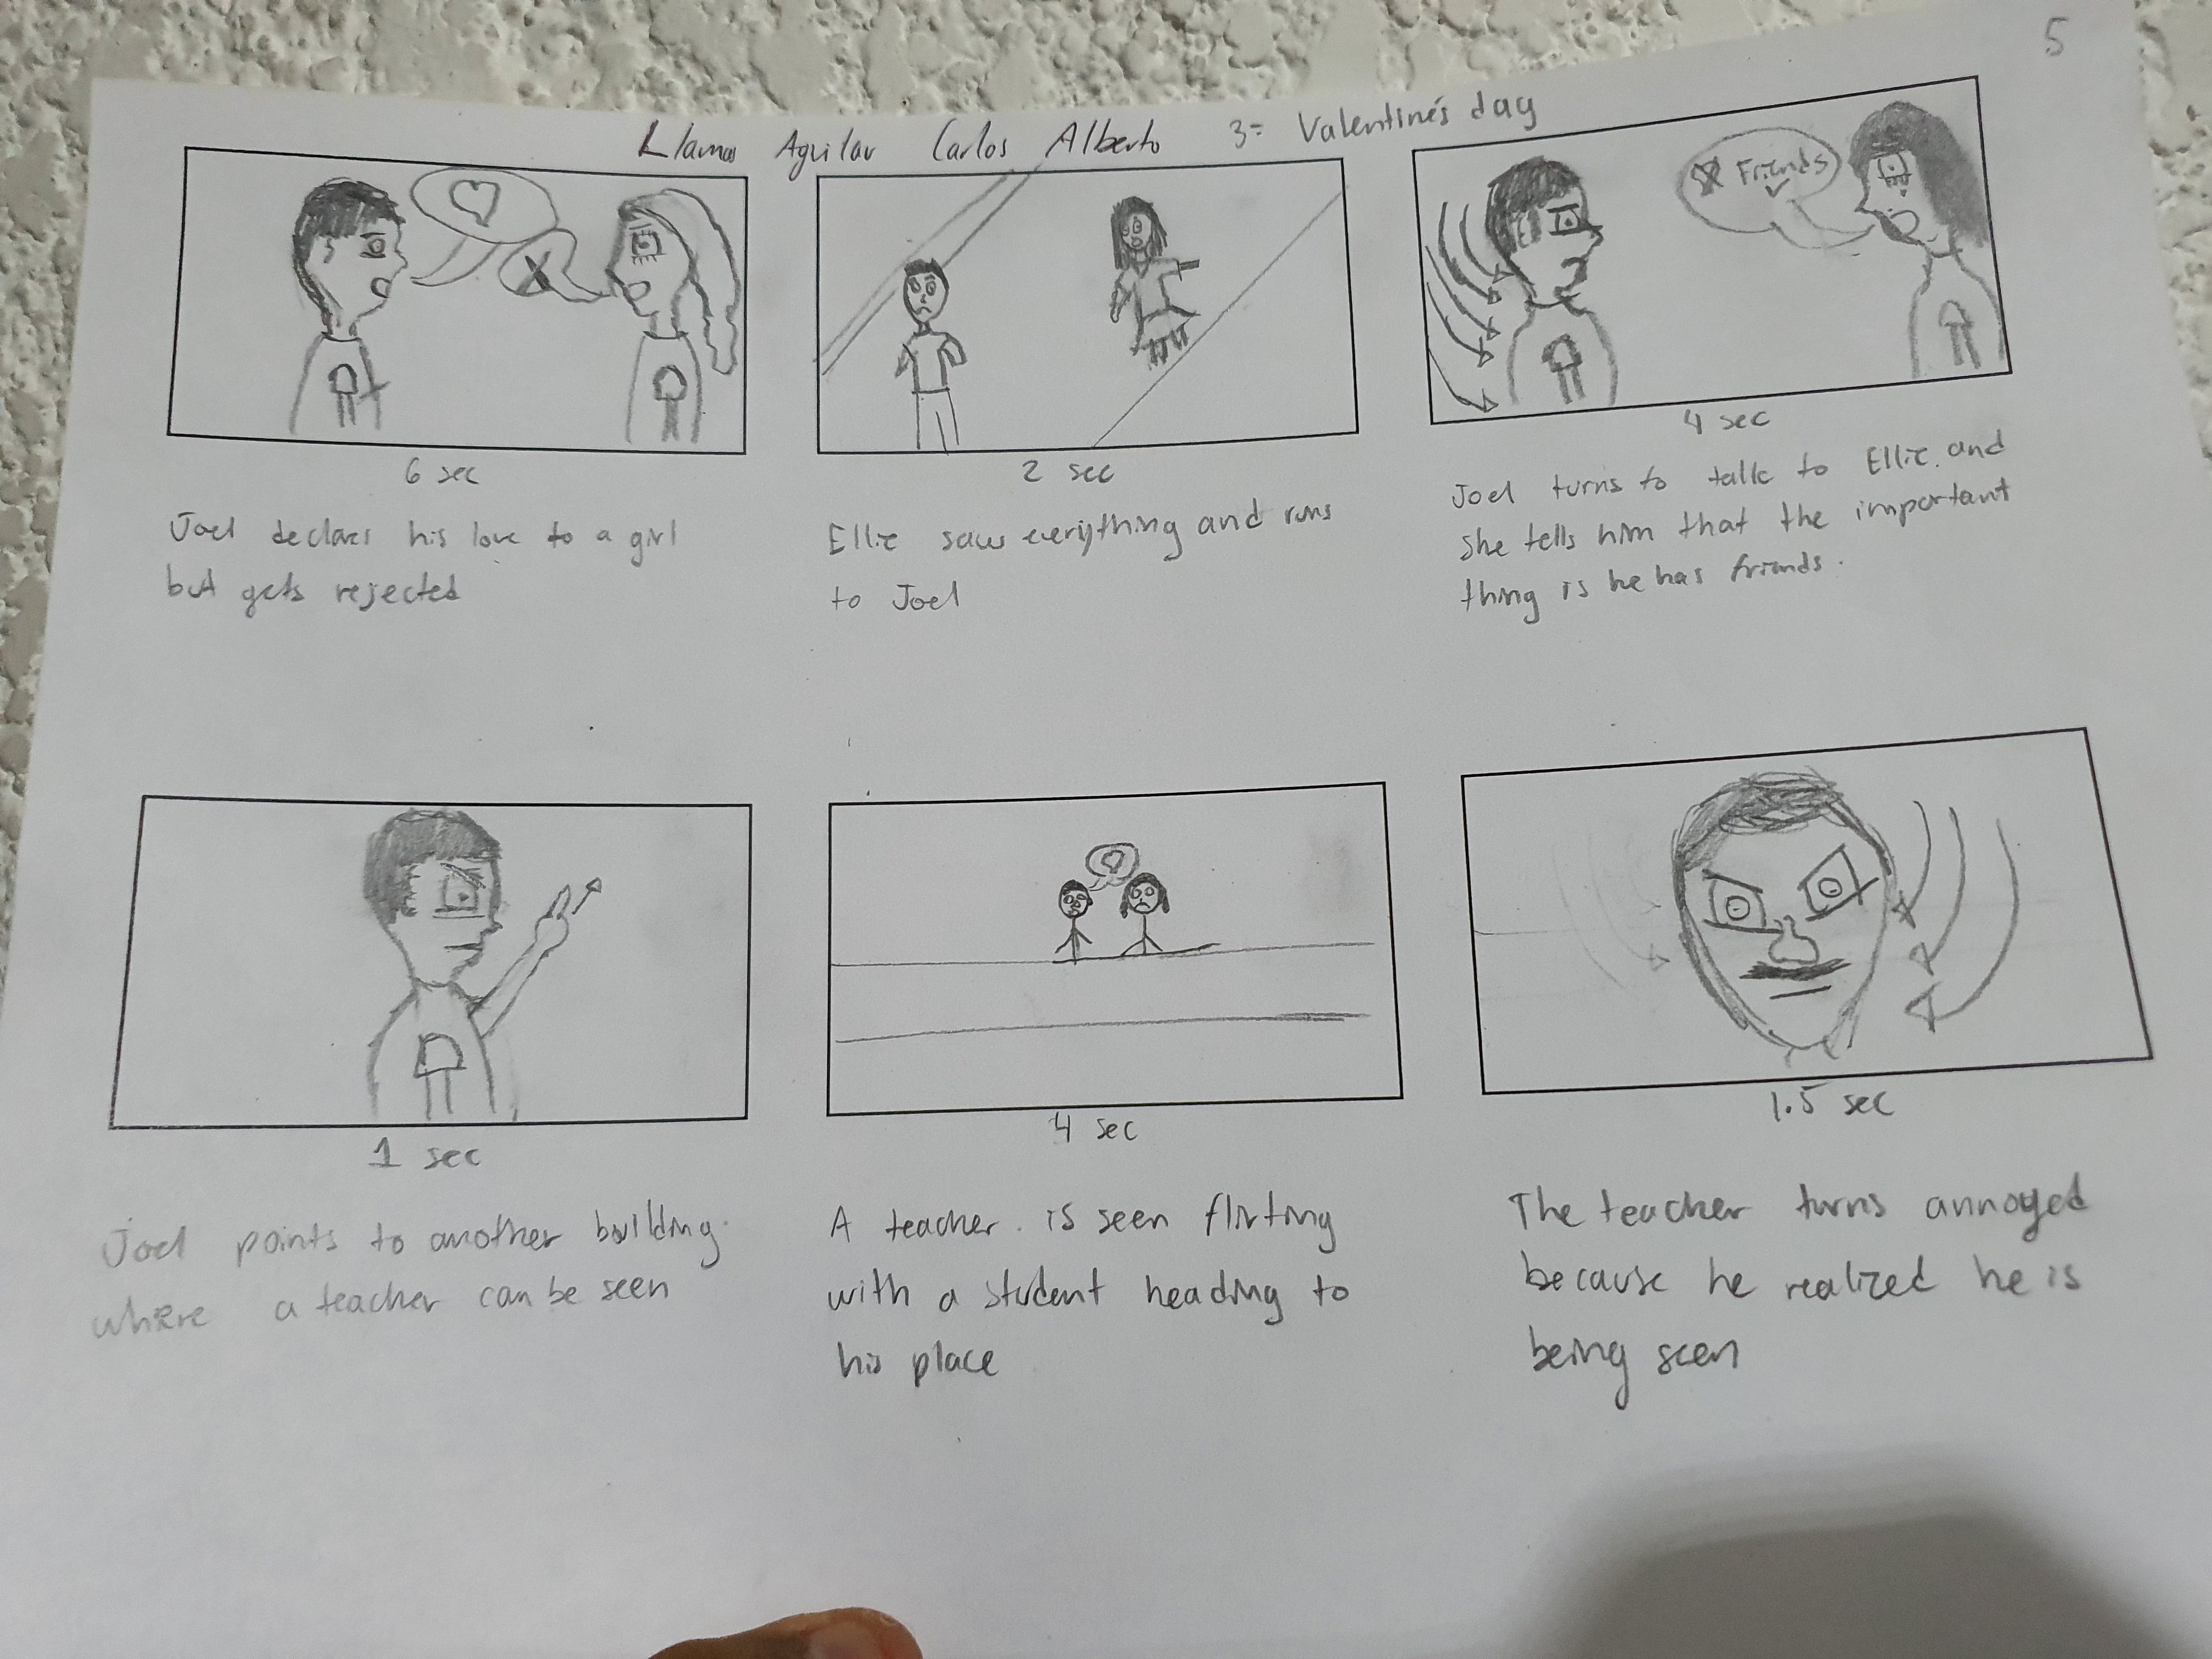 5
Llamas Aguilar Carlos Alberto 3= Valentine's day
Friends
6 sec
Joel declares his love to a girl
but gets rejected
2 sec
Ellie saw everything and runs
to Joel
4 sec
Joel turns to talk to Ellie and
she tells him that the important
thing is he has friends.
1 sec
Joel points to another building
where a teacher can be seen
4 sec
A teacher is seen flirting
with a student heading to
his place
1.5 sec
The teacher turns annoyed
because he realized he is
being seen